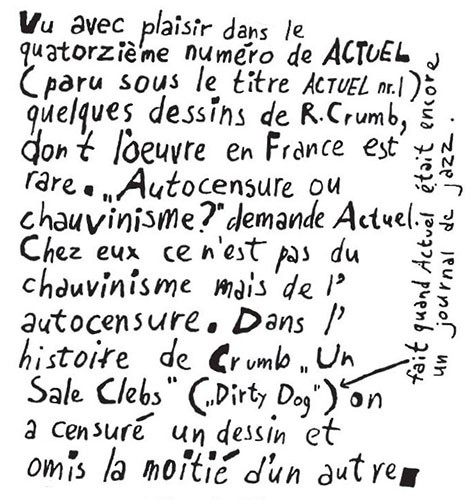 Vu avec plaisir dans le
quatorzième numéro de ACTUEL
(paru sous le titre ACTUEL nr.1)
quelques dessins de R.Crumb,
dont l'oeuvre en France est
rare. „Autocensure ou
chauvinisme?" demande Actuel.
Chez eux ce n'est pas du
chauvinisme mais de l'
autocensure. Dans l'
histoire de Crumb „Un
Sale Clebs" („Dirty Dog") on
a censuré un dessin et
omis la moitié d'un autre.
fait quand Actuel était encore
un journal de jazz.